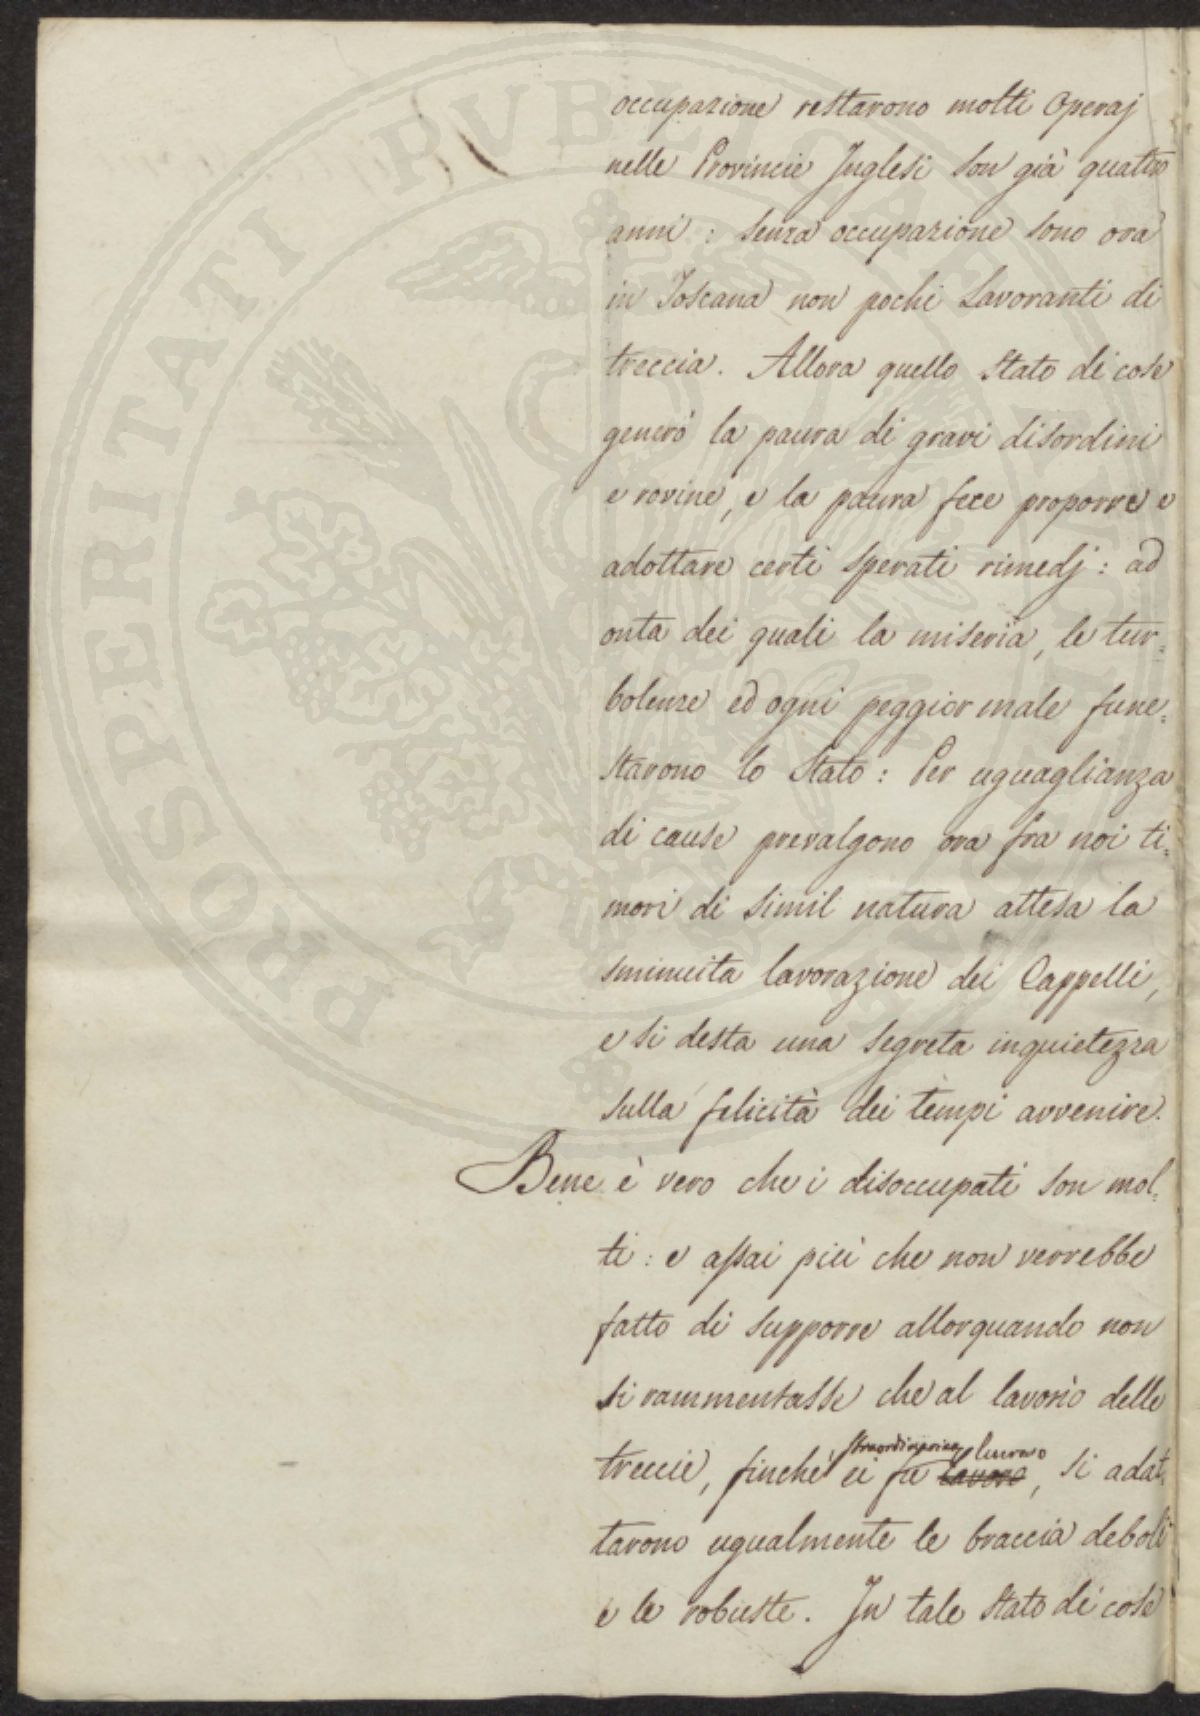 occupazione restarono molti Operaj
nelle Provincie Inglesi son già quattro
anni : senza occupazione sono ora
in Toscana non pochi Lavoranti di
treccia. Allora quello stato di cose
generò la paura di gravi disordini
e rovine, e la paura fece proporre e
adottare certi sperati rimedj : ad
onta dei quali la miseria, le tur=
bolenze ed ogni peggior male fune=
starono lo Stato : Per uguaglianza
di cause prevalgono ora fra noi ti=
mori di simil natura attesa la
sminuita lavorazione dei Cappelli,
e si desta una segreta inquietezza
sulla felicità dei tempi avvenire.
Bene è vero che i disoccupati son mol=
ti : e assai più che non verrebbe
fatto di supporre allorquando non
si rammentasse che al lavorìo delle
straordinario lucro
treccie, finchè ci fu lavoro, si adat=
tarono ugualmente le braccia deboli
e le robuste. In tale stato di cose
PROSPERITATI PUBLICAE AUGENDAE